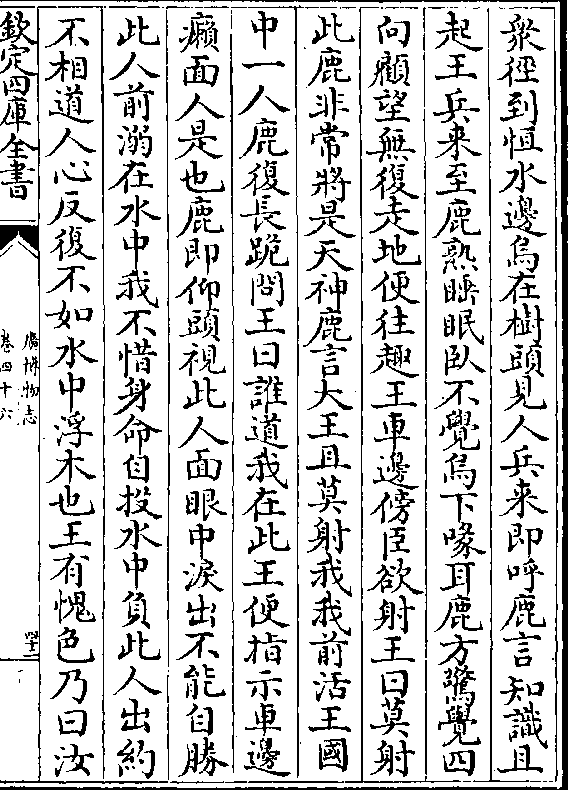 衆徑到恒水邊烏在樹頭見人兵来即呼鹿言知識且
起王兵来至鹿熟睡眠臥不覺烏下喙耳鹿方驚覺四
向顧望無復走地便往趣王車邊傍臣欲射王曰莫射
此鹿非常將是天神鹿言大王且莫射我我前活王國
中一人鹿復長跪問王曰誰道我在此王便指示車邊
癩面人是也鹿即仰頭視此人面眼中淚出不能自勝
此人前溺在水中我不惜身命自投水中負此人出約
不相道人心反復不如水中浮木也王有愧色乃曰汝
欽定四庫全書
廣博物志
卷四十六